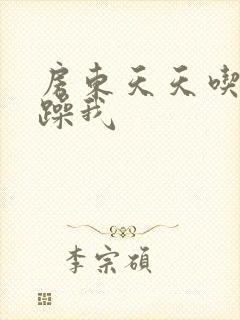 房东天天喫
躁我
李宗硕